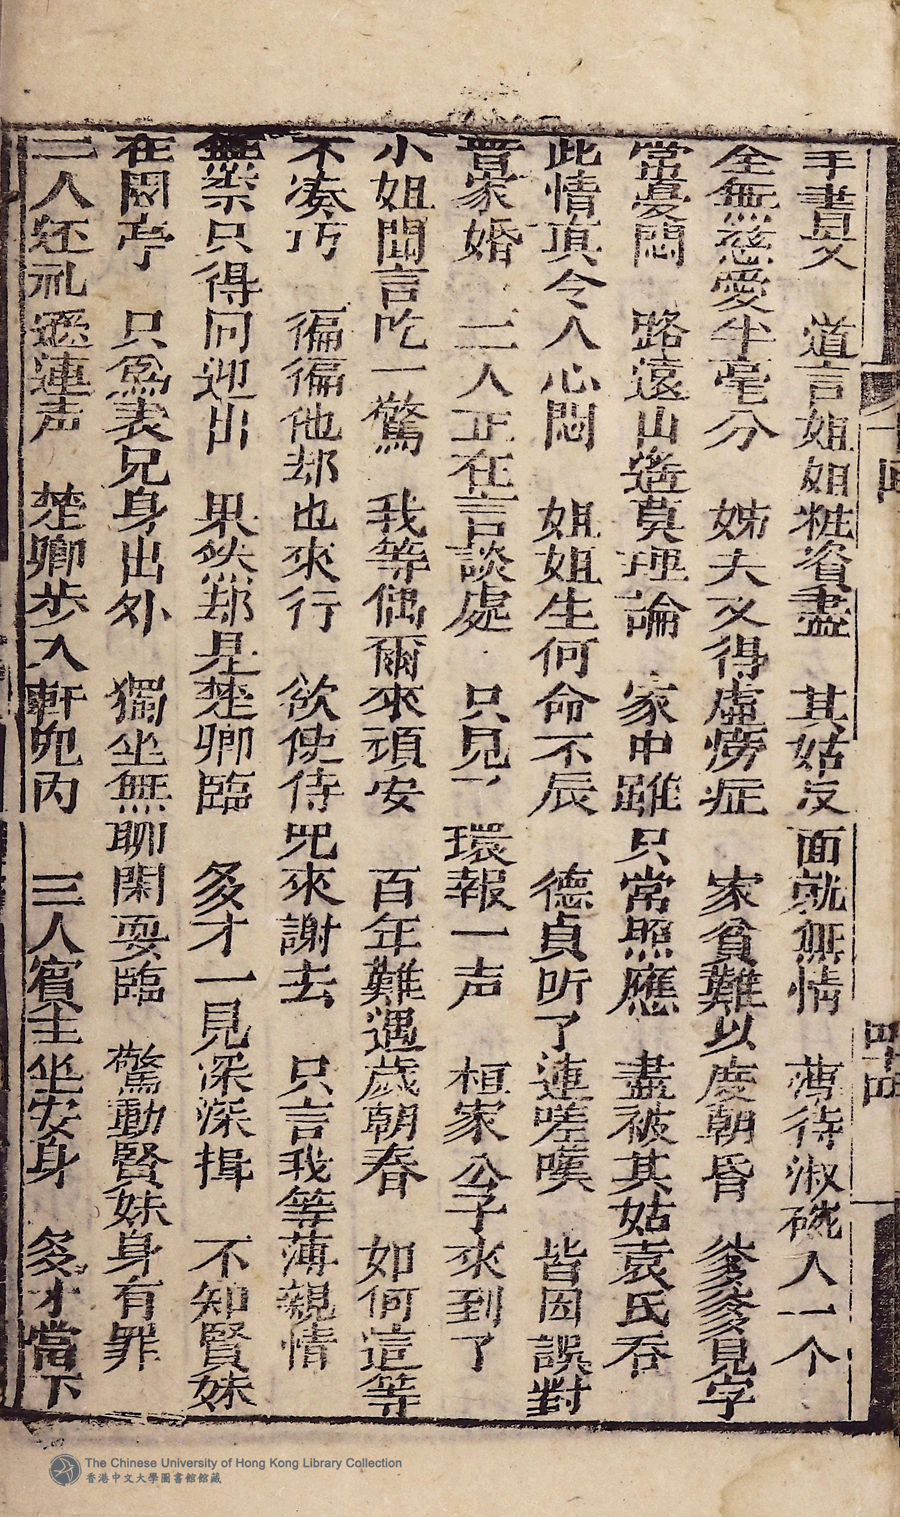 手書是父　道言姐姐粧資盡　其姑反面就無情　薄待淑　人一个
全無慈愛半毫分　姊夫又得虛癆症　家貧難以度朝昏　爹爹見字
常憂悶　路遠山遙莫理論　家中雖只常照應　盡被其姑袁氏吞
此情真令人心悶　姐姐生何命不辰　德貞听了連嗟嘆　皆因誤對
賈家婚　二人正在言談處　只見丫環報一声　桓家公子來到了
小姐聞言吃一驚　我等偶爾來頑安　百年難遇歲朝春　如何這等
不凑巧　徧徧他却也來行　欲使侍児來謝去　只言我等薄親情
無柰只得同迎出　果然却是楚卿臨　多才一見深深揖　不知賢妹
在園亭　只為表兄身出外　獨坐無聊閑耍臨　驚動賢妹身有罪
二人还礼遜連声　楚卿步入軒兒内　三人賓主坐安身　多才當下
十四
四十四
The Chinese University of Hong Kong Library Collection
香港中文大學圖書館館藏